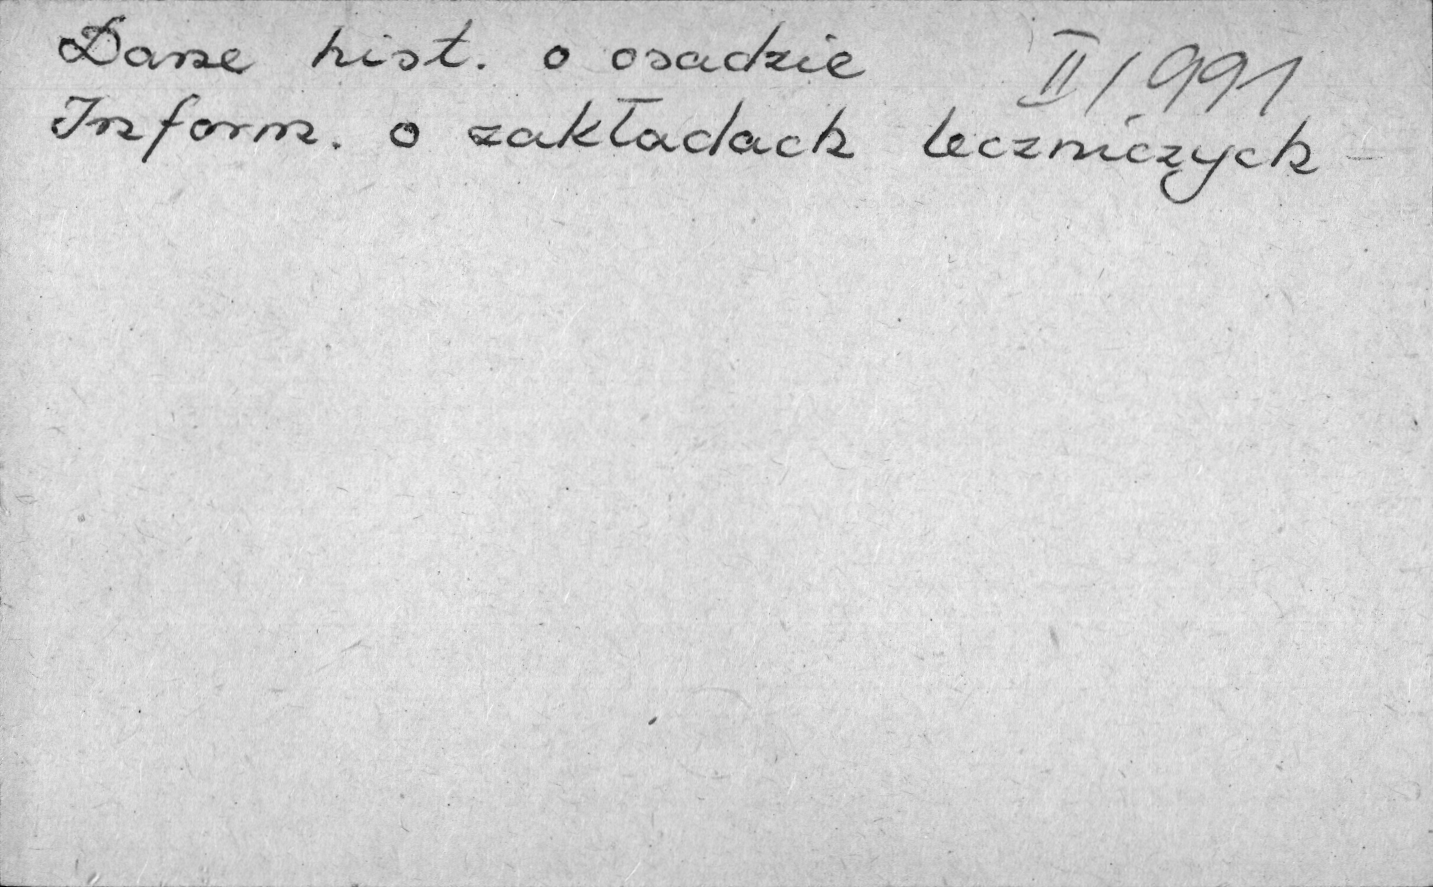 Dane hist. o osadzie II/991
Inform. o zakładach leczniczych -